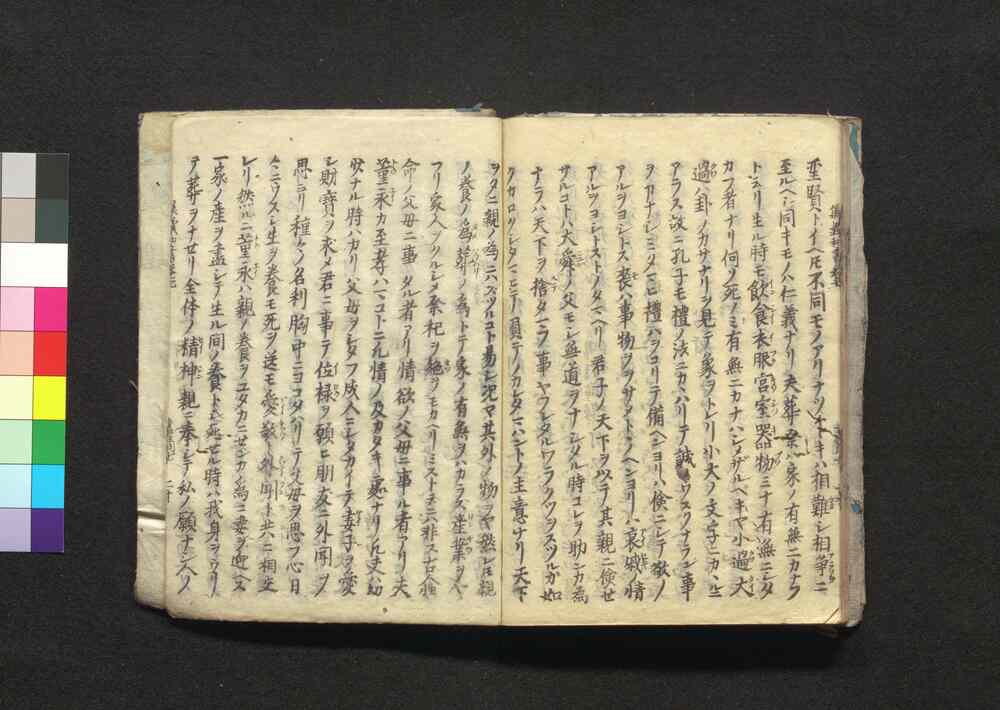 聖賢トイヘ𪜈不同モノアリナツトキハ相難シ相爭ニ
至ルヘシ同キモノハ仁義ナリ夫葬祭ハ家ノ有無ニカナフ
トミヘリ生ル時モ飮食衣服宮室器物ミナ有無ニシタ
カフ者ナリ何ソ死ノミ有無ニカナハシメザルベキヤ小過大
過ノ卦ノカサナリヲ見テ象ヲトレリ小大ノ文字ニカヽハ
アラス故ニ孔子モ禮ノ法ニカハリテ誠ウスクナラン事
ヲカナシミタマヒ禮ハヲコリテ備ヘンヨリハ儉ニシテ敬ノ
アルヲヨシトス喪ハ事物ヲヲサメトヽノヘンヨリハ哀戚ノ情
アルヲヨシトストノタマヘリ君子ノ天下ヲ以テ其親ニ儉せ
サルコトハ大舜ノ父モシ無道ヲナシタル時コレヲ助ンカ為
ナラハ天下ヲ捨タマフ事ヤフレタルワラクツヲスツルカ如
クカロクシタマヒテ負テノカレタマハントノ主意ナリ天下
ヲタニ親ノ為ニハスツルコト易シ况ヤ其外ノ物ヲヤ然レ𪜈親
ノ養ノ為葬ノ為トテ家ノ有無ヲハカラズ産業ヲヤ
フリ家人ヲクルシメ祭祀ヲ絶ヲモカヘリミストヱニハ非ス古人性
命ノ父母ニ事タル者アリ情欲ノ父母ニ事ル者アリ夫
董永カ至孝ハマコトニ凡情ノ及カタキ處ナリ凡丈ハ幼
少ナル時ハカリ父母ヲシタフ成人ニシタカイテ妻子ヲ愛
シ財寶ヲ求メ君ニ事テ位祿ヲ願ヒ朋友ニ外聞ヲ
思ヘリ種々ノ名利胸中ニヨコタハリテ父母ヲ思フ心日
々ニウスシ生ヲ養モ死ヲ送モ愛敬ト外聞ト共ニ相交
レリ然ルニ董永ハ親ノ養ヲユタカニせンカ為ニ妻ヲ迎ヘス
一家ノ産ヲ盡シテ生ル間ノ養トシ死せル時ハ我身ヲウリ
テ葬ヲナせリ全体ノ精神親ニ奉シテ私ノ願ナシ人ノ